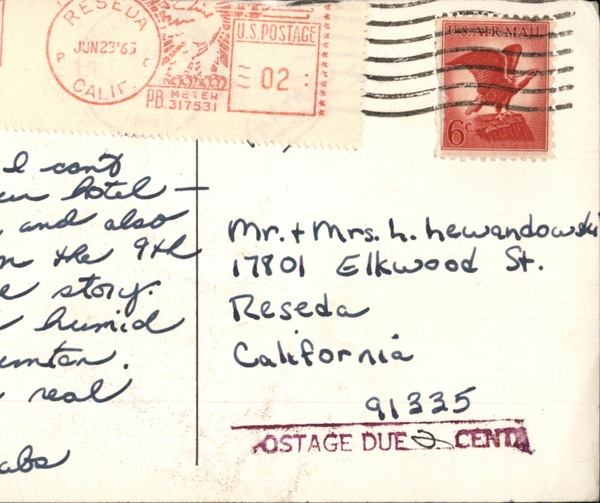 RESEDA
JUN 23 '63
P C
CALIF.
U.S. POSTAGE
02
PB. METER
317531
U.S. AIR MAIL
6c
I can't
hotel —
and also
the 9th
story.
humid
real
Mr. + Mrs. L. Lewandowski
17801 Elkwood St.
Reseda
California
91335
OSTAGE DUE 2 CENT